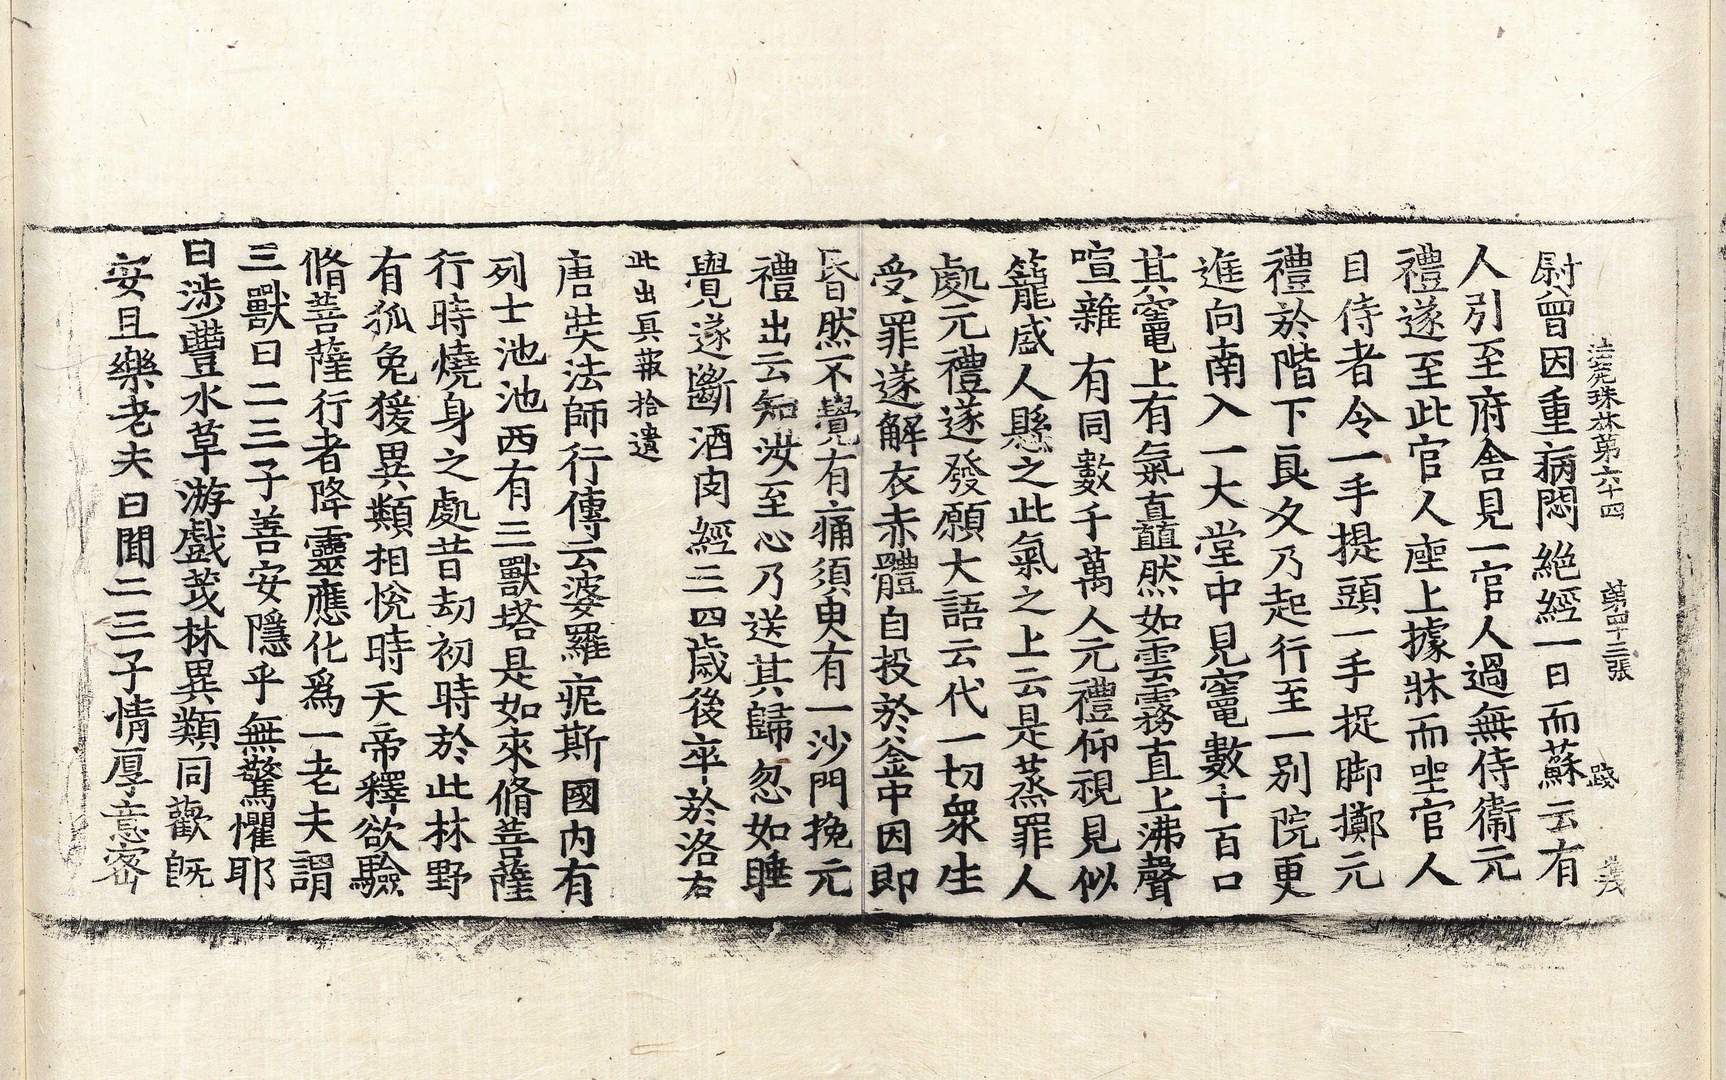 法苑珠林第六十四 第四十三張 踐 茂
尉曾因重病悶絕經一日而蘇云有
人引至府舍見一官人過無侍衛元
禮遂至此官人座上據牀而坐官人
目侍者令一手提頭一手捉脚擲元
禮於階下良久乃起行至一別院更
進向南入一大堂中見竈數十百口
其竈上有氣直䪴然如雲霧直上沸聲
喧雜有同數千萬人元禮仰視見似
籠盛人懸之此氣之上云是蒸罪人
處元禮遂發願大語云代一切衆生
受罪遂解衣赤體自投於釜中因即
昏然不覺有痛須臾有一沙門挽元
禮出云知汝至心乃送其歸忽如睡
覺遂斷酒肉經三四歲後卒於洛右
此出冥報拾遺
唐奘法師行傳云婆羅痆斯國內有
列士池池西有三獸塔是如來脩菩薩
行時燒身之處昔劫初時於此林野
有狐兔猨異類相悅時天帝釋欲驗
脩菩薩行者降靈應化爲一老夫謂
三獸曰二三子善安隱乎無驚懼耶
曰涉豐水草游戲茂林異類同歡旣
安且樂老夫曰聞二三子情厚意密